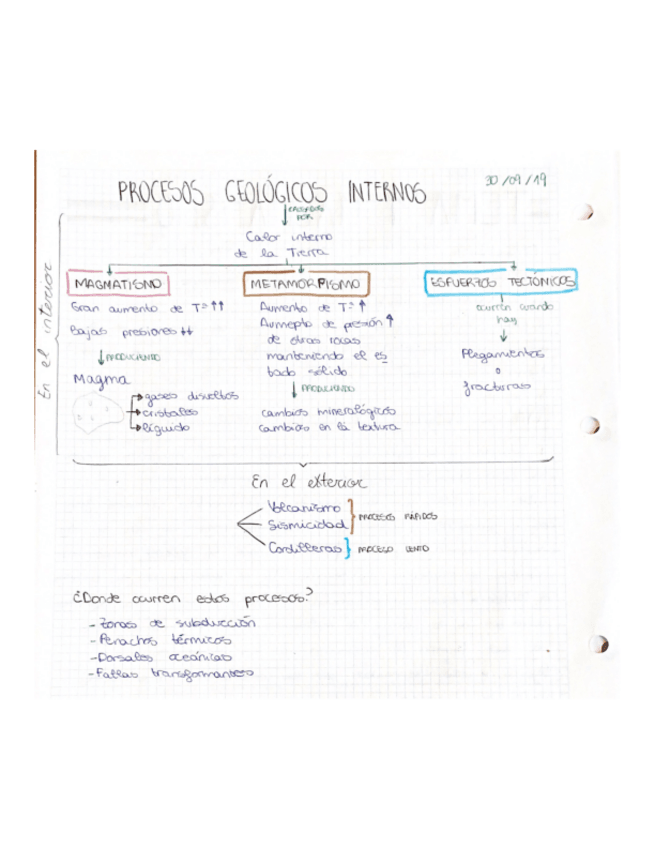 PROCESOS GEOLÓGICOS INTERNOS
30/09/19
CAUSADOS
POR
Calor interno
de la Tierra
En el interior
MAGMATISMO
Gran aumento de Tª ↑↑
Bajas presiones ↓↓
PRODUCIENDO
Magma
gases disueltos
cristales
líquido
METAMORPISMO
Aumento de Tª ↑
Aumento de presión ↑
de otras rocas
manteniendo el es
tado sólido
PRODUCIENDO
cambios mineralógicos
cambios en la textura
ESFUERZOS TECTÓNICOS
ocurren cuando
hay
Plegamientos
o
fracturas
En el exterior
Volcanismo
Sismicidad
PROCESOS RÁPIDOS
Cordilleras
PROCESO LENTO
¿Donde ocurren estos procesos?
- Zonas de subducción
- Penachos térmicos
- Dorsales oceánicas
- Fallas transformantes